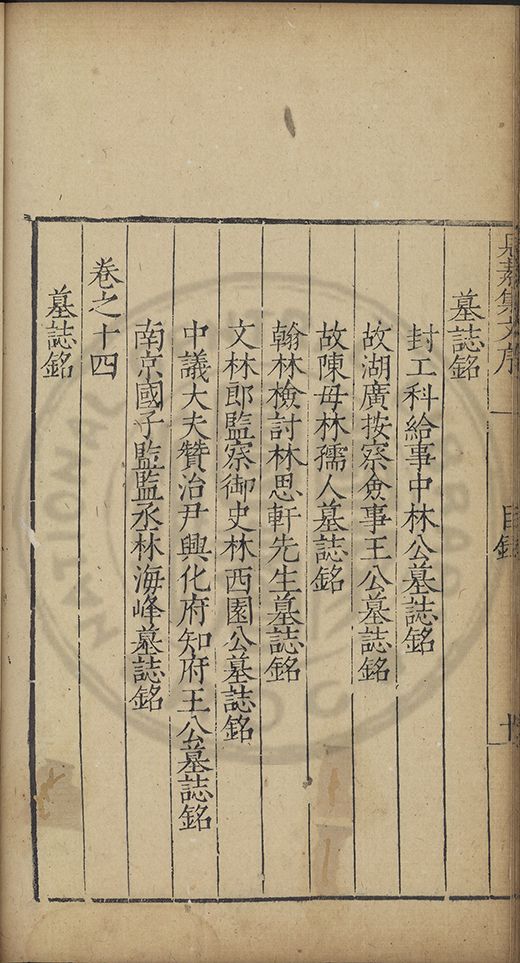 墓誌銘
封工科給事中林公墓誌銘
故湖廣按察僉事王公墓誌銘
故陳母林孺人墓誌銘
翰林檢討林思軒先生墓誌銘
文林郎監察御史林西園公墓誌銘
中議大夫贊治尹興化府知府王公墓誌銘
南京國子監監丞林海峰墓誌銘
卷之十四
墓誌銘